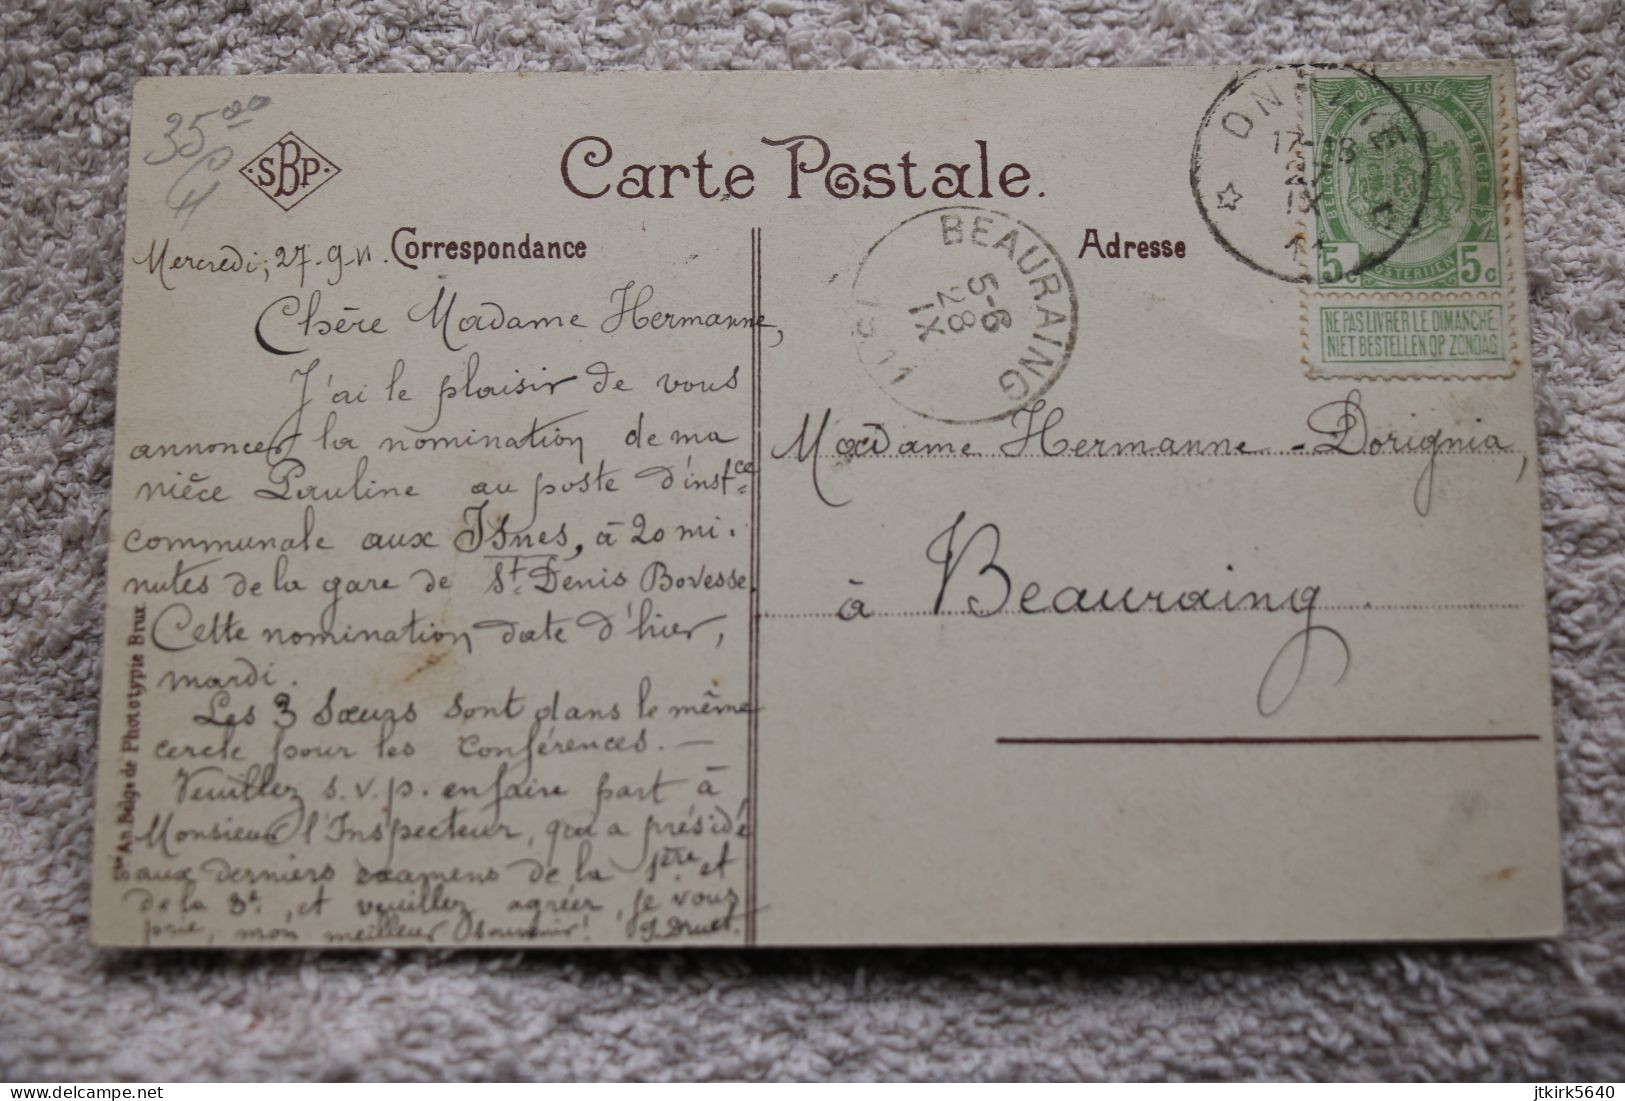 35 00
SBP
Carte Postale.
Correspondance
Adresse
Mercredi, 27-9-11.
Chère Madame Hermanne,
J'ai le plaisir de vous
annoncer la nomination de ma
nièce Pauline au poste d'inst.ce
communale aux Isnes, à 20 mi-
nutes de la gare de St. Denis Bovesse.
Cette nomination date d'hier,
mardi.
Les 3 sœurs sont dans le même
cercle pour les conférences. —
Veuillez s.v.p. en faire part à
Monsieur l'Inspecteur, qui a présidé
aux derniers examens de la 1ère et
de la 3e, et veuillez agréer, je vous
prie, mon meilleur souvenir! J. Druet.
Ste An. Belge de Phototypie Brux
BEAURAING
5-6
28
IX
1911
17-18
IX
11
POSTES
BELGIQUE
BELGIE
POSTERIJEN
5c 5c
NE PAS LIVRER LE DIMANCHE
NIET BESTELLEN OP ZONDAG
Madame Hermanne-Dorignia,
à Beauraing
jtkirk5640